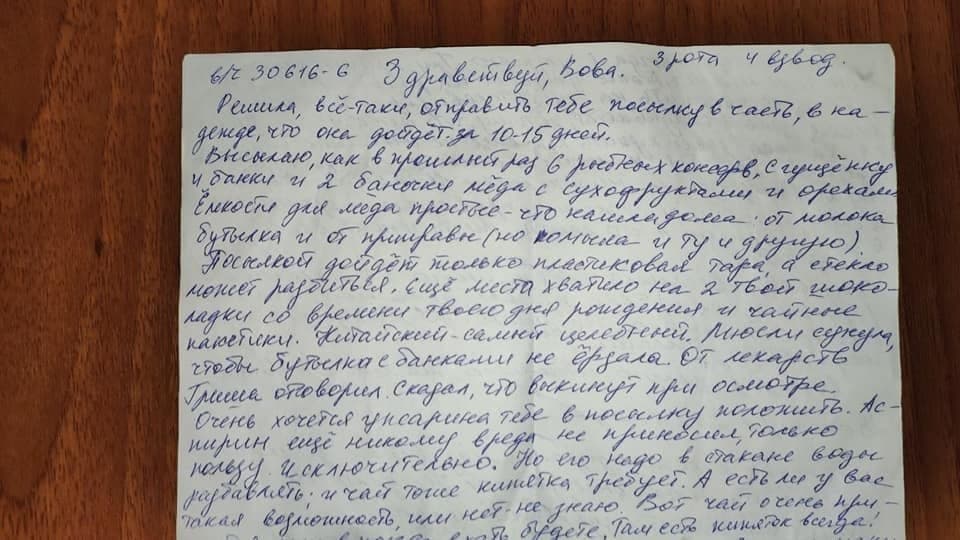 в/ч 30616-6 Здравствуй, Вова. 3 рота 4 взвод.
Решила, всё-таки, отправить тебе посылку в часть, в на-
дежде, что она дойдёт за 10-15 дней.
Высылаю, как в прошлый раз 6 рыбных консерв, сгущёнку
4 банки и 2 баночки мёда с сухофруктами и орехами.
Ёмкости для меда простые - что нашла дома: от молока
бутылка и от приправы (но помыла и ту и другую).
Посылкой дойдёт только пластиковая тара, а стекло
может разбиться. Ещё места хватило на 2 твои шоко-
ладки со времени твоего дня рождения и чайные
пакетики. Китайский - самый целебный. Мюсли сунула,
чтобы бутылка с банками не ёрзала. От лекарств
Гриша отговорил. Сказал, что выкинут при осмотре
Очень хочется упсарина тебе в посылку положить. Ас-
пирин ещё никому вреда не приносил, только
пользу. Исключительно. Но его надо в стакане воды
разбавлять: и чай тоже кипятка требует. А есть ли у вас
такая возможность, или нет - не знаю. Вот чай очень при-
ехать будете. Там есть кипяток всегда!